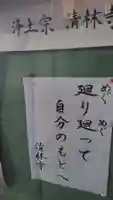 浄土宗 清林寺
廻り廻って
自分のもとへ
清林寺